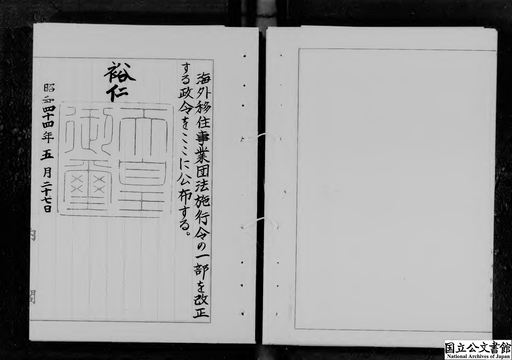 海外移住事業団法施行令の一部を改正
する政令をここに公布する。
裕仁
天皇
御璽
昭和四十四年五月二十七日
内閣
国立公文書館
National Archives of Japan